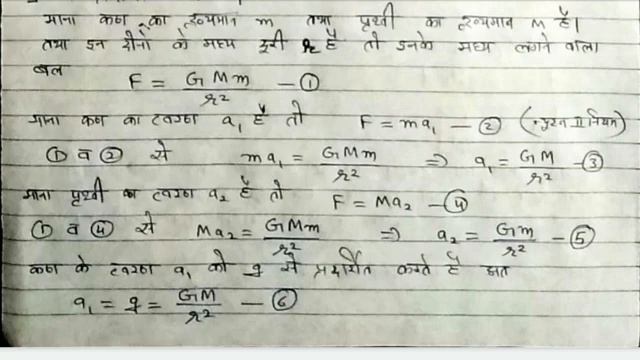 माना कण का द्रव्यमान m तथा पृथ्वी का द्रव्यमान M है।
तथा इन दोनों के मध्य दूरी r है तो इनके मध्य लगने वाला
बल F = GMm/r² — ①
माना कण का त्वरण a₁ है तो F = ma₁ — ② (न्यूटन II नियम)
① व ② से ma₁ = GMm/r² ⇒ a₁ = GM/r² — ③
माना पृथ्वी का त्वरण a₂ है तो F = Ma₂ — ④
① व ④ से Ma₂ = GMm/r² ⇒ a₂ = Gm/r² — ⑤
कण के त्वरण a₁ को g से प्रदर्शित करते है अत
a₁ = g = GM/r² — ⑥